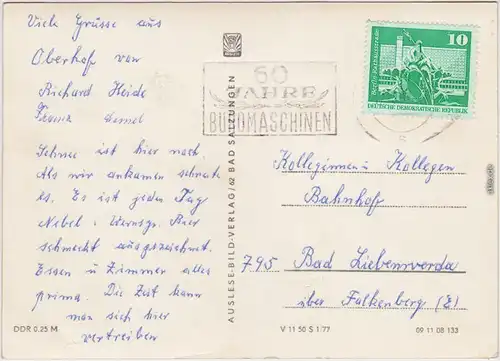 Viele Grüsse aus
Oberhof von
Richard Heide
Franz
Schnee ist hier noch.
Als wir ankamen schneite
es. Es ist jeden Tag
Nebel. Bier
schmeckt ausgezeichnet.
Essen u Zimmer alles
prima. Die Zeit kann
man sich hier
vertreiben
DDR 0.25 M
AUSLESE-BILD-VERLAG/62 BAD SALZUNGEN
60
JAHRE
BÜROMASCHINEN
10
Berlin-Rathausstraße
DEUTSCHE DEMOKRATISCHE REPUBLIK
Kolleginnen u Kollegen
Bahnhof
795 Bad Liebenwerda
über Falkenberg (E)
V 11 50 S 1/77
09 11 08 133